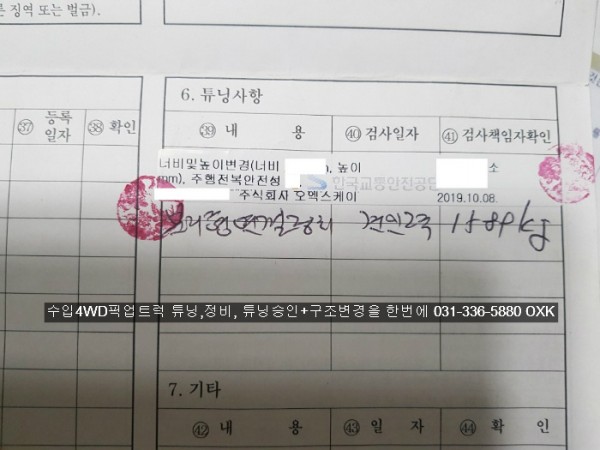 른 징역 또는 벌금).
6. 튜닝사항
㊲ 등록일자 ㊳ 확인
㊴ 내 용 ㊵ 검사일자 ㊶ 검사책임자확인
너비및높이변경(너비 높이
mm), 주행전복안전성 한국교통안전공단 소
주식회사 오멕스케이 2019.10.08.
분리형 연결장치 견인고죽 1580kg
수입4WD픽업트럭 튜닝,정비, 튜닝승인+구조변경을 한번에 031-336-5880 OXK
7. 기타
㊷ 내 용 ㊸ 일 자 ㊹ 확 인